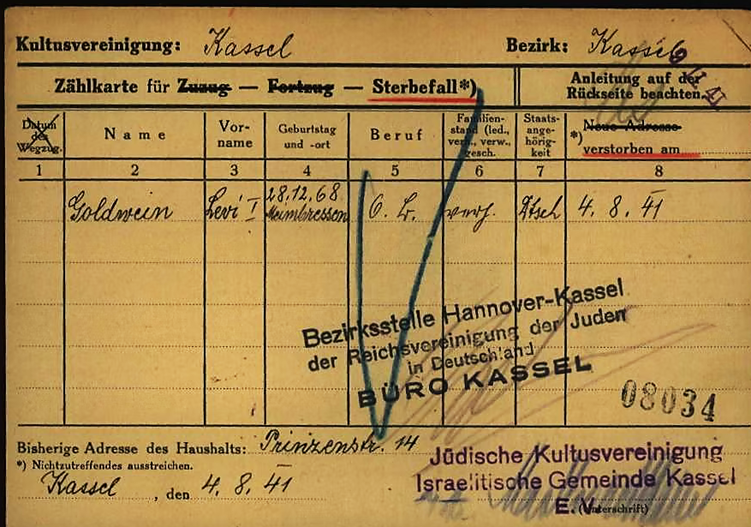 Kultusvereinigung: Kassel Bezirk: Kassel
Zählkarte für Zuzug — Fortzug — Sterbefall*) Anleitung auf der
Rückseite beachten.
Datum des Wegzug. Name Vor-name Geburtstag und -ort Beruf Familien-stand (led., verh., verw., gesch. Staats-ange-hörig-keit *) Neue Adresse verstorben am
1 2 3 4 5 6 7 8
28.12.68
Goldwein Levi I Meimbressen O. L. verh. Dtsch 4. 8. 41
Bezirksstelle Hannover-Kassel
der Reichsvereinigung der Juden
in Deutschland
BÜRO KASSEL
08034
Bisherige Adresse des Haushalts: Prinzenstr. 14
*) Nichtzutreffendes ausstreichen.
Jüdische Kultusvereinigung
Israelitische Gemeinde Kassel
E.V.
Kassel, den 4. 8. 41
(Unterschrift)